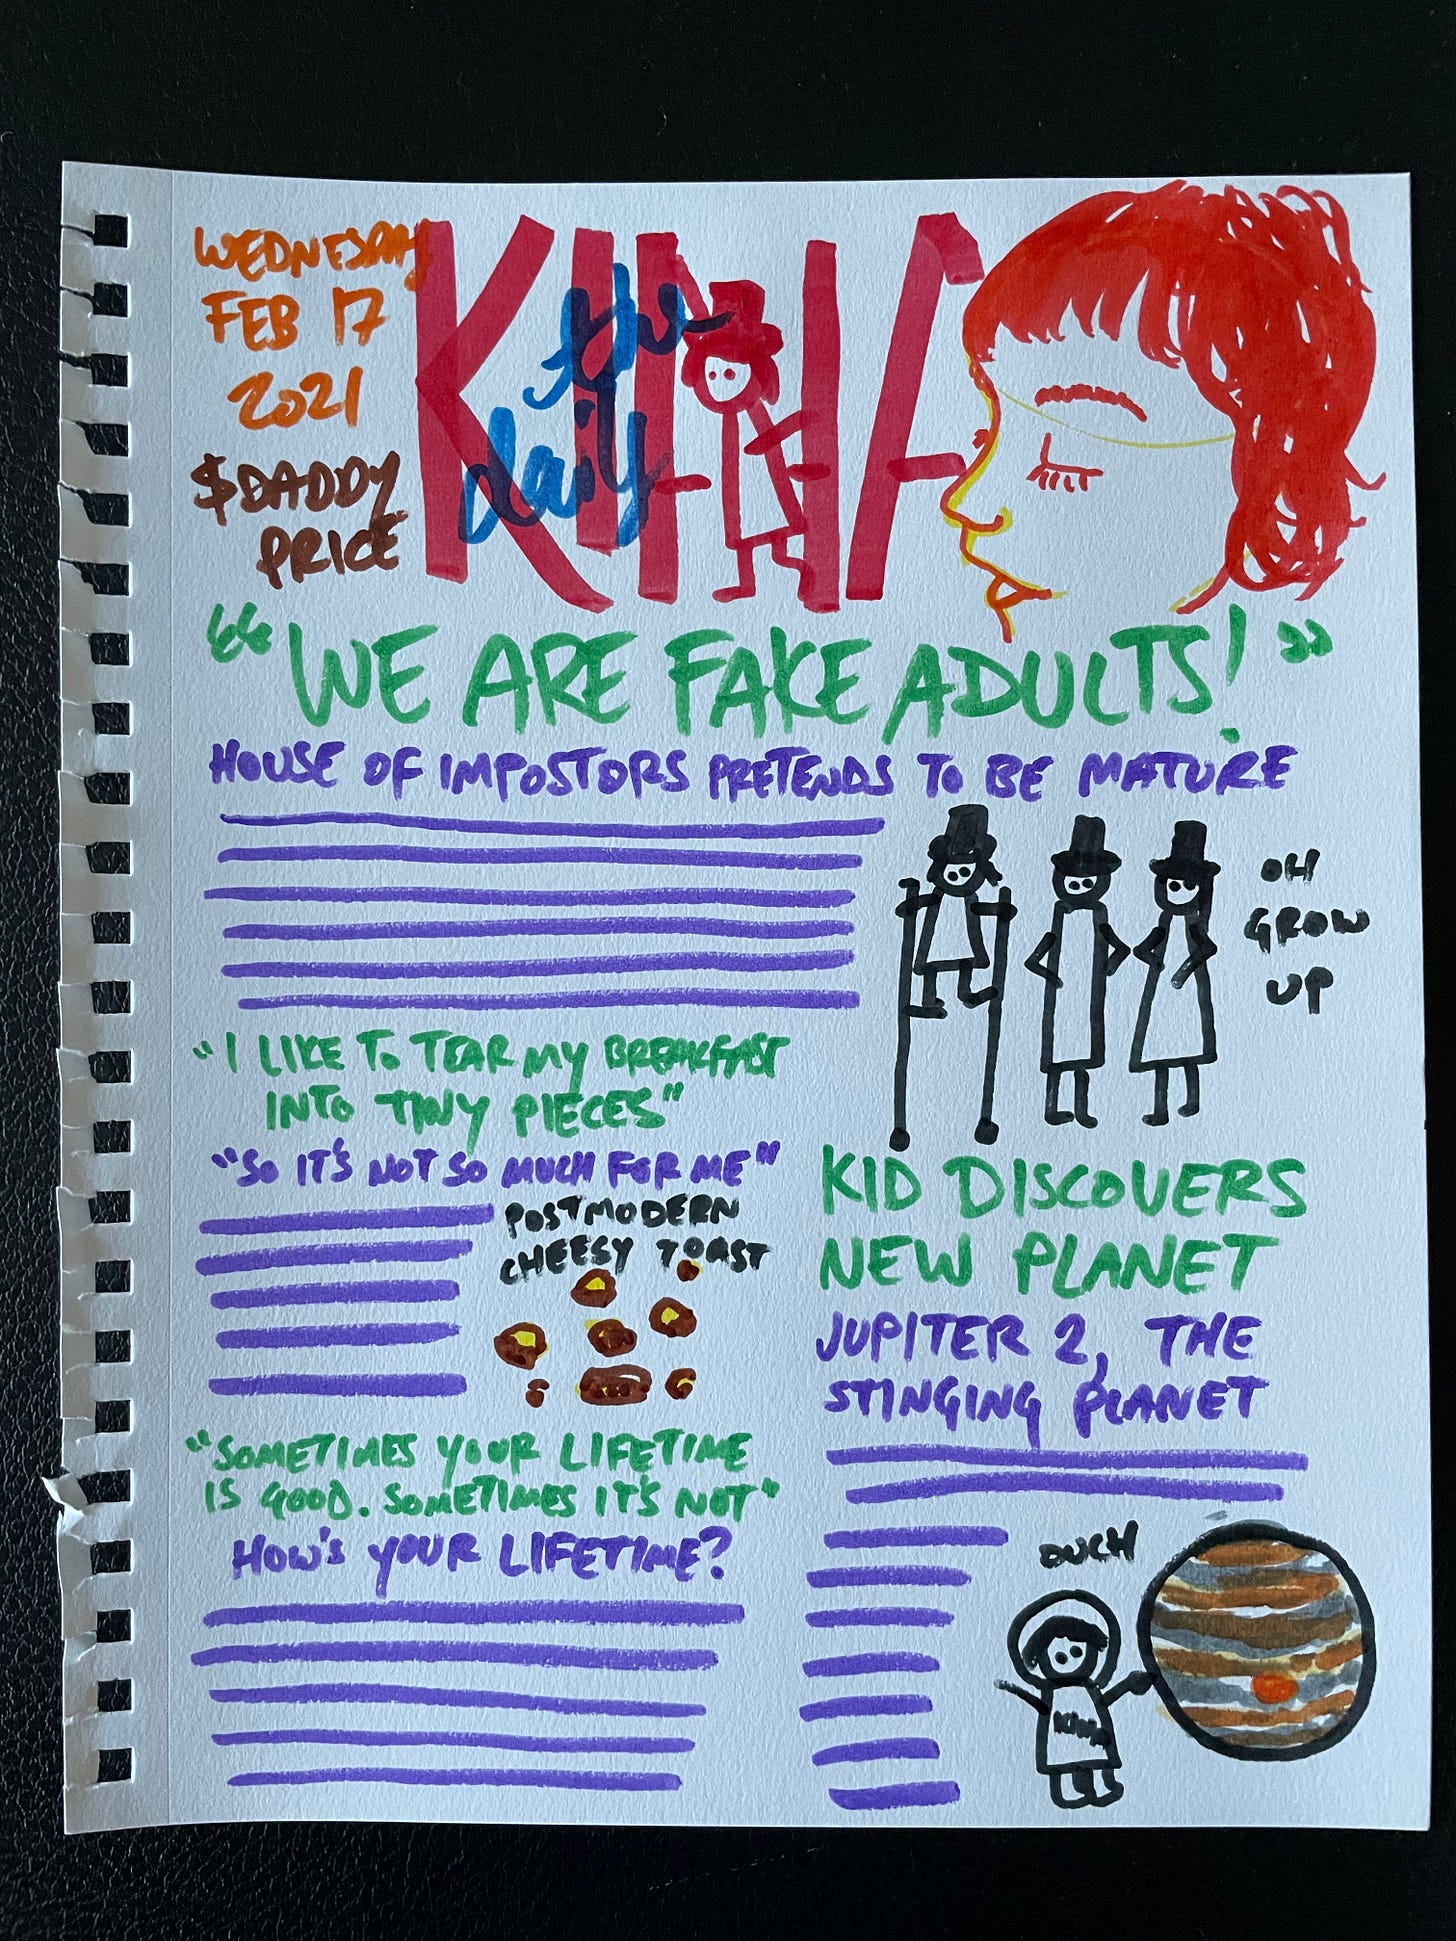 WEDNESDAY
FEB 17
2021
$DADDY
PRICE
the
daily
"WE ARE FAKE ADULTS!"
HOUSE OF IMPOSTORS PRETENDS TO BE MATURE
OH
GROW
UP
"I LIKE TO TEAR MY BREAKFAST
INTO TINY PIECES"
"SO IT'S NOT SO MUCH FOR ME"
POSTMODERN
CHEESY TOAST
"SOMETIMES YOUR LIFETIME
IS GOOD. SOMETIMES IT'S NOT"
HOW'S YOUR LIFETIME?
KID DISCOVERS
NEW PLANET
JUPITER 2, THE
STINGING PLANET
OUCH